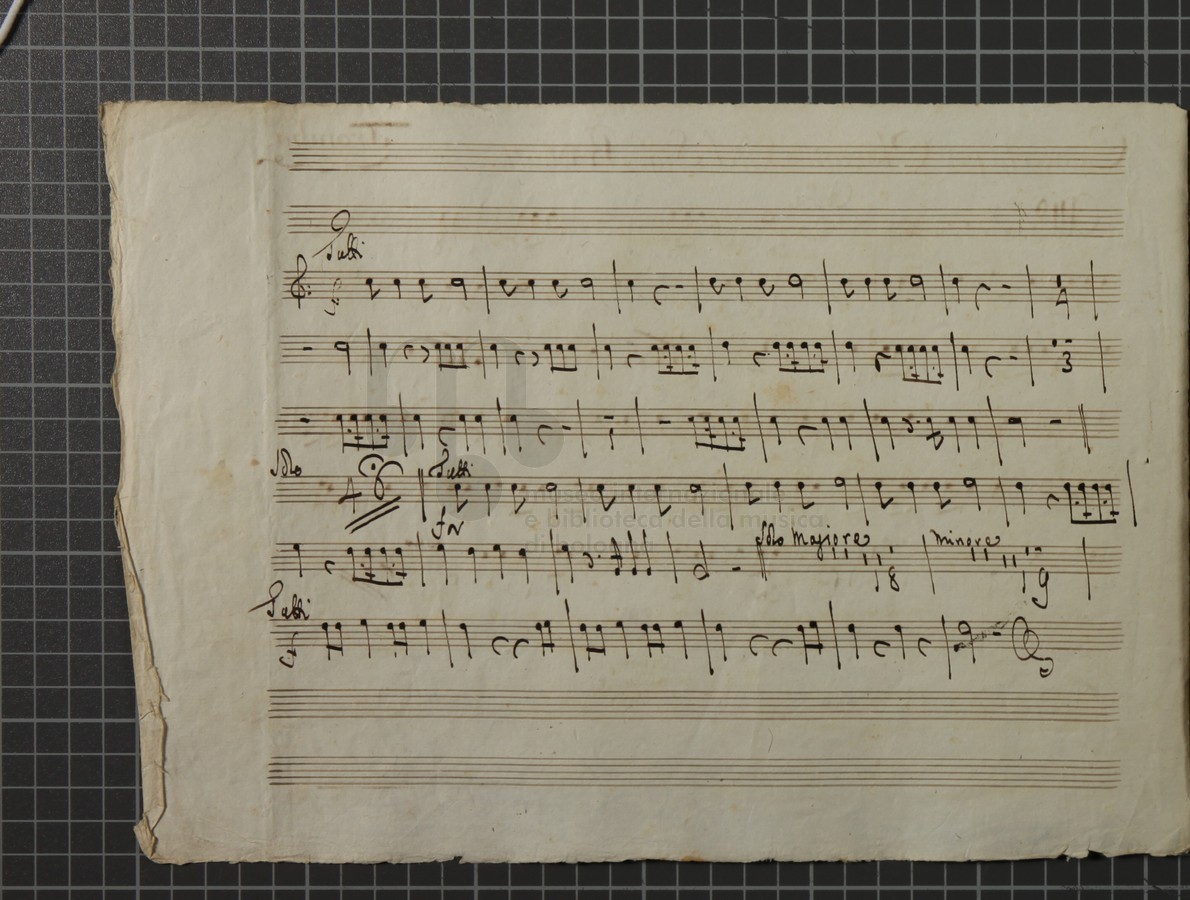 Tutti
4
3
Solo
4
Tutti
Solo Majiore
8
minore
9
Tutti
museo internazionale
e biblioteca della musica
di bologna